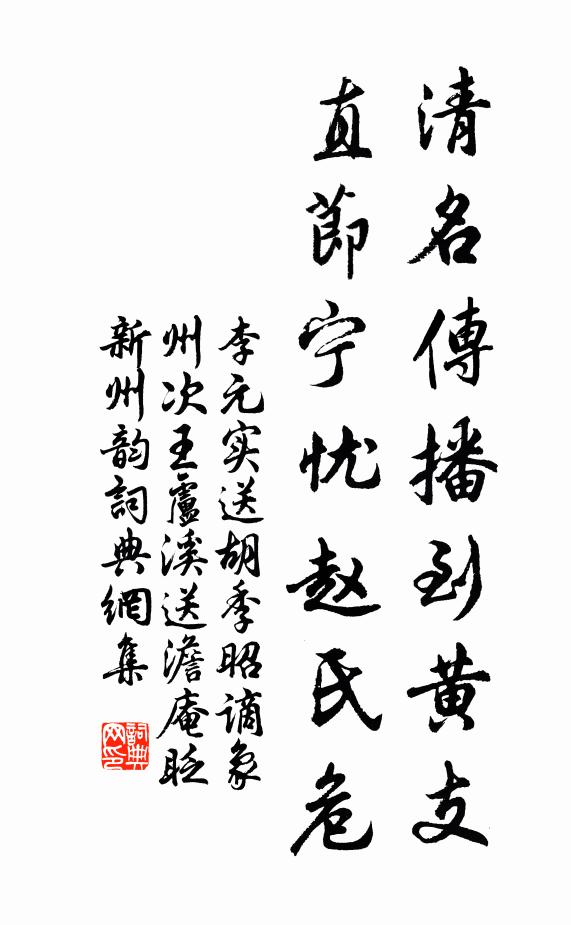 清名傳播到黄支
直節宁忧赵氏危
李元实送胡季昭謫象
州次王盧溪送澹庵貶
新州韵詞典網集
詞典网印